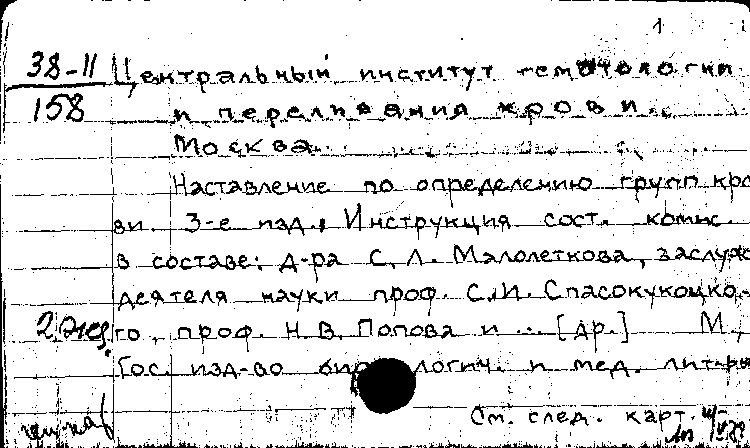 1
38-11
158
Центральный институт гематологии
и переливания крови.
Москва.
Наставление по определению групп кро
ви. 3-е изд., Инструкция сост. комис.
в составе: д-ра С. Л. Малолеткова, заслуж
деятеля науки проф. С.И. Спасокукоцко-
го, проф. Н. В. Попова и ... [др.] М.,
2 экз.
Гос. изд-во биологич. и мед. лит-ры
См. след. карт.